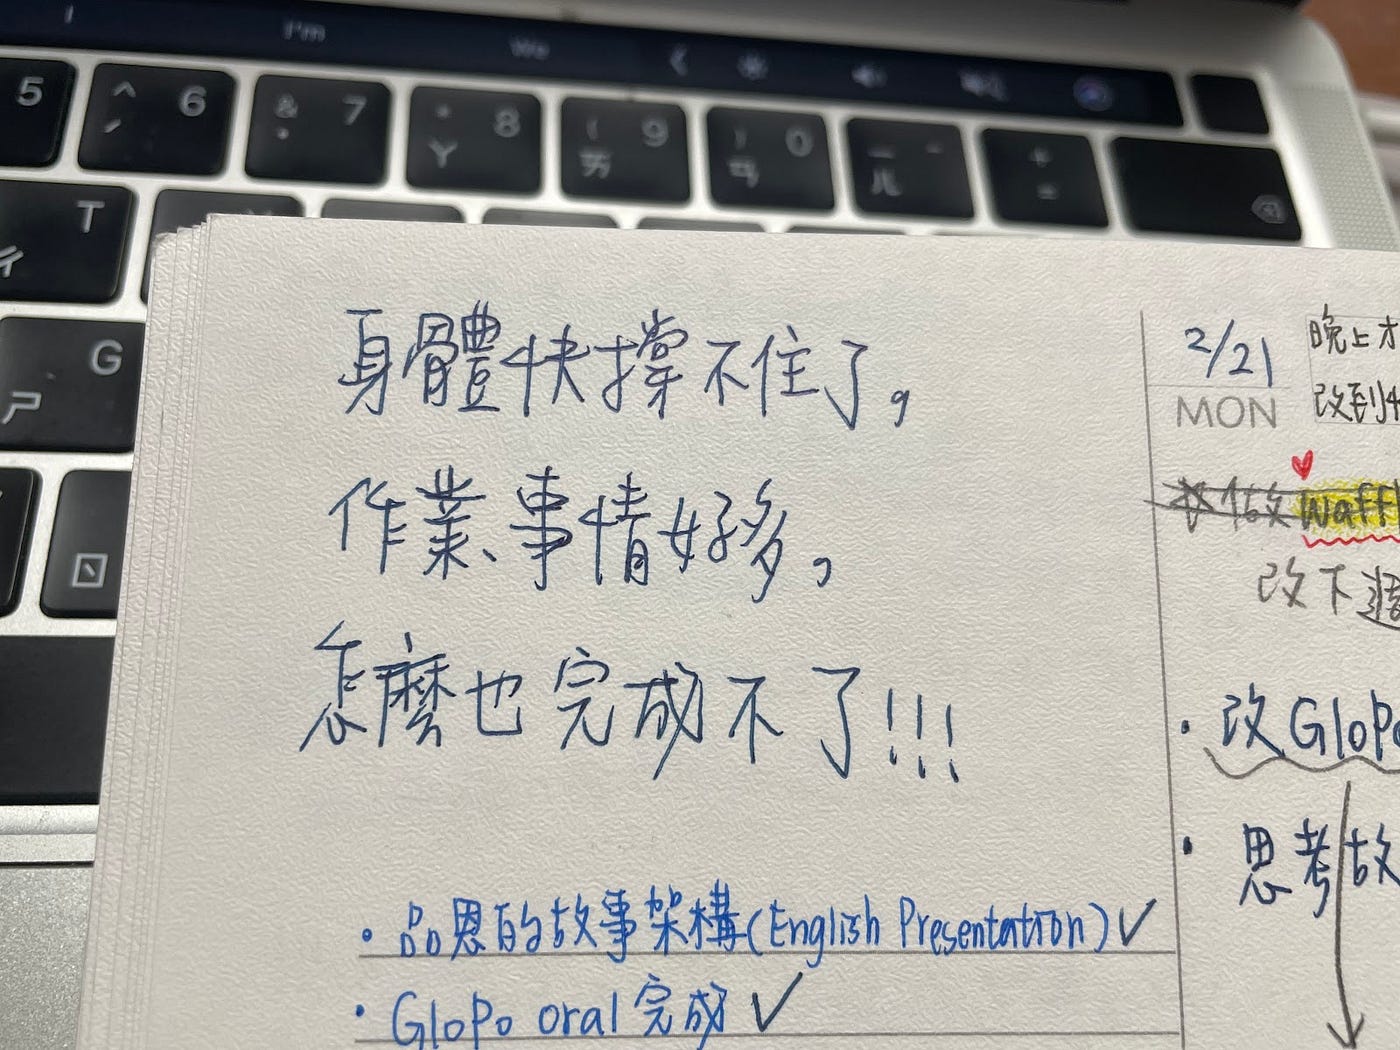 I I'm We
5 ^ 6 & 7 * 8 ( 9 ) 0 — - + =
ˊ ˙ ㄚ ㄞ ㄢ ㄦ
T
ㄔ
G
ㄕ
ㄖ
身體快撐不住了,
作業、事情好多,
怎麼也完成不了!!!
• 品恩的故事架構(English Presentation) ✓
• GloPo oral 完成 ✓
2/21
MON
晚上才
改到4
做 waff
改下週
• 改 GloPo
• 思考故